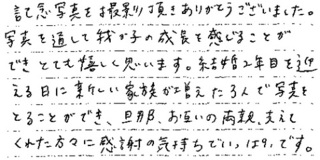 記念写真を撮影頂きありがとうございました。
写真を通して我が子の成長を感じることが
できとても嬉しく思います。結婚2年目を迎
える日に新しい家族が増えた3人で写真を
とることができ、旦那、お互いの両親、支えて
くれた方々に感謝の気持ちでいっぱいです。